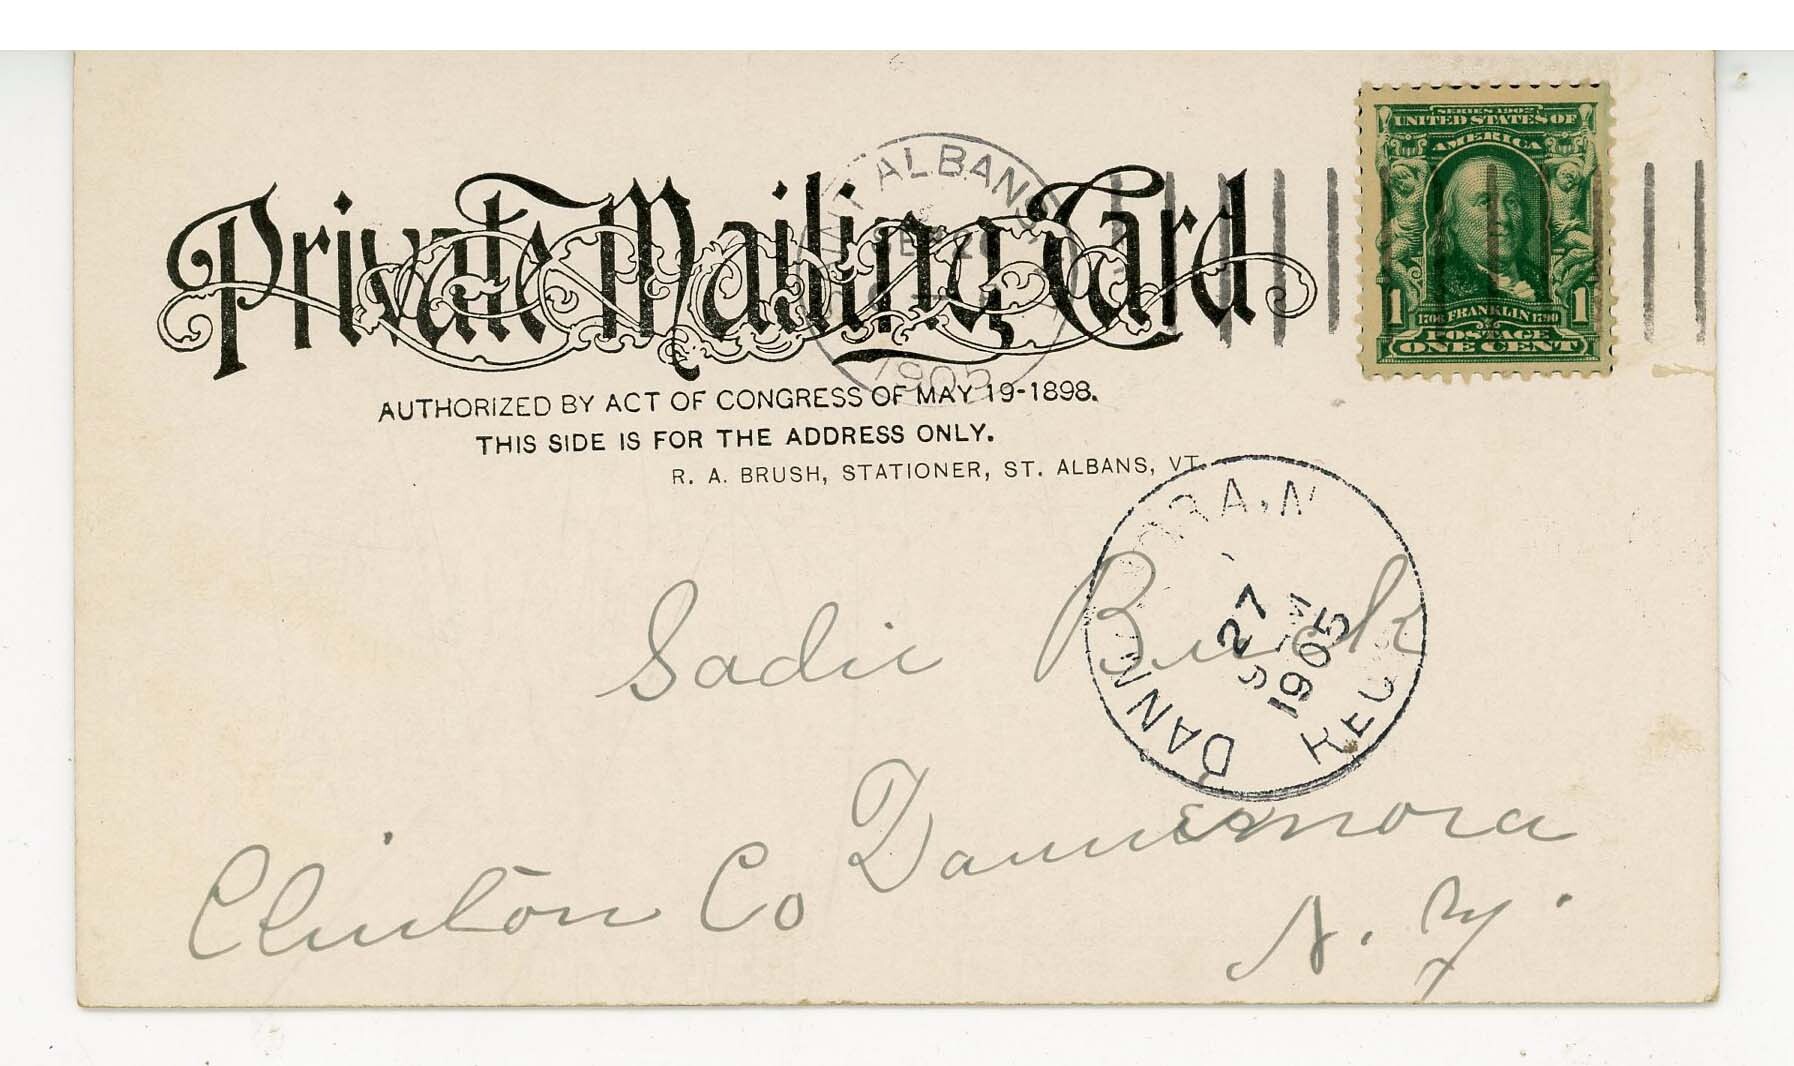 Private Mailing Card
AUTHORIZED BY ACT OF CONGRESS OF MAY 19-1898.
THIS SIDE IS FOR THE ADDRESS ONLY.
R. A. BRUSH, STATIONER, ST. ALBANS, VT.
ALBANS,
1905
SERIES 1902
UNITED STATES OF
AMERICA
1 1706 FRANKLIN 1790 1
POSTAGE
ONE CENT
27
1905
REC'D
Sadie Buck
Dannemora
Clinton Co
N. Y.